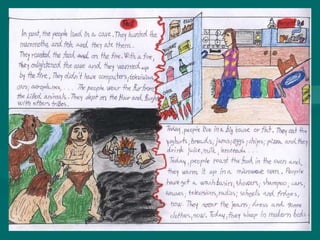 Past
In past, the people lived In a cave. They hunted the
mammoths and fish and they ate them.
They roasted the food and on the fire. With a fire,
they enlightened the cave and they warmed up
by the fire. They didn't have computers, televisions
cars, aeroplanes, ... The people wear the fur from
the killed animals. They slept on the floor and fought
with others tribes.
Today, people live in a big house or flat. They eat the
yoghurts, breads, jams, eggs, chips, pizza, and they
drink juice, milk, lemonade....
Today, people roast the food in the oven and,
they warm it up in a microwave oven. People
have got a washbasin, showers, shampoo, cars,
houses, televisions, radios, schools and fridges,
now. They wear the jeans, dress and some
clothes, now. Today, they sleep in modern beds.